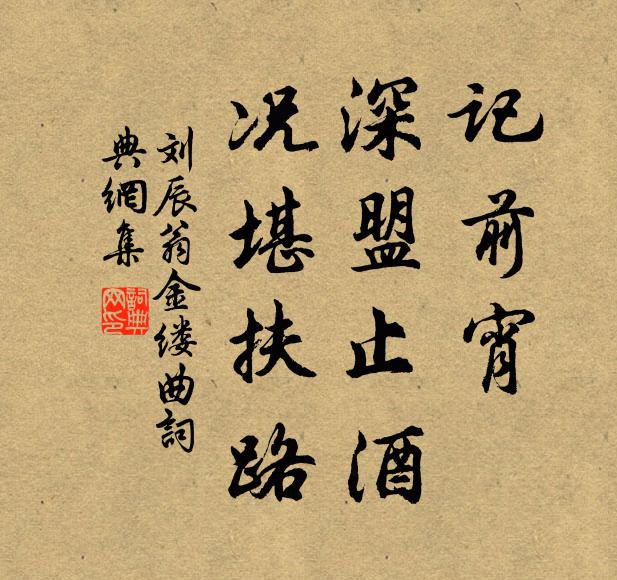 记前宵
深盟止酒
况堪扶路
刘辰翁金缕曲詞
典網集
詞典
网印